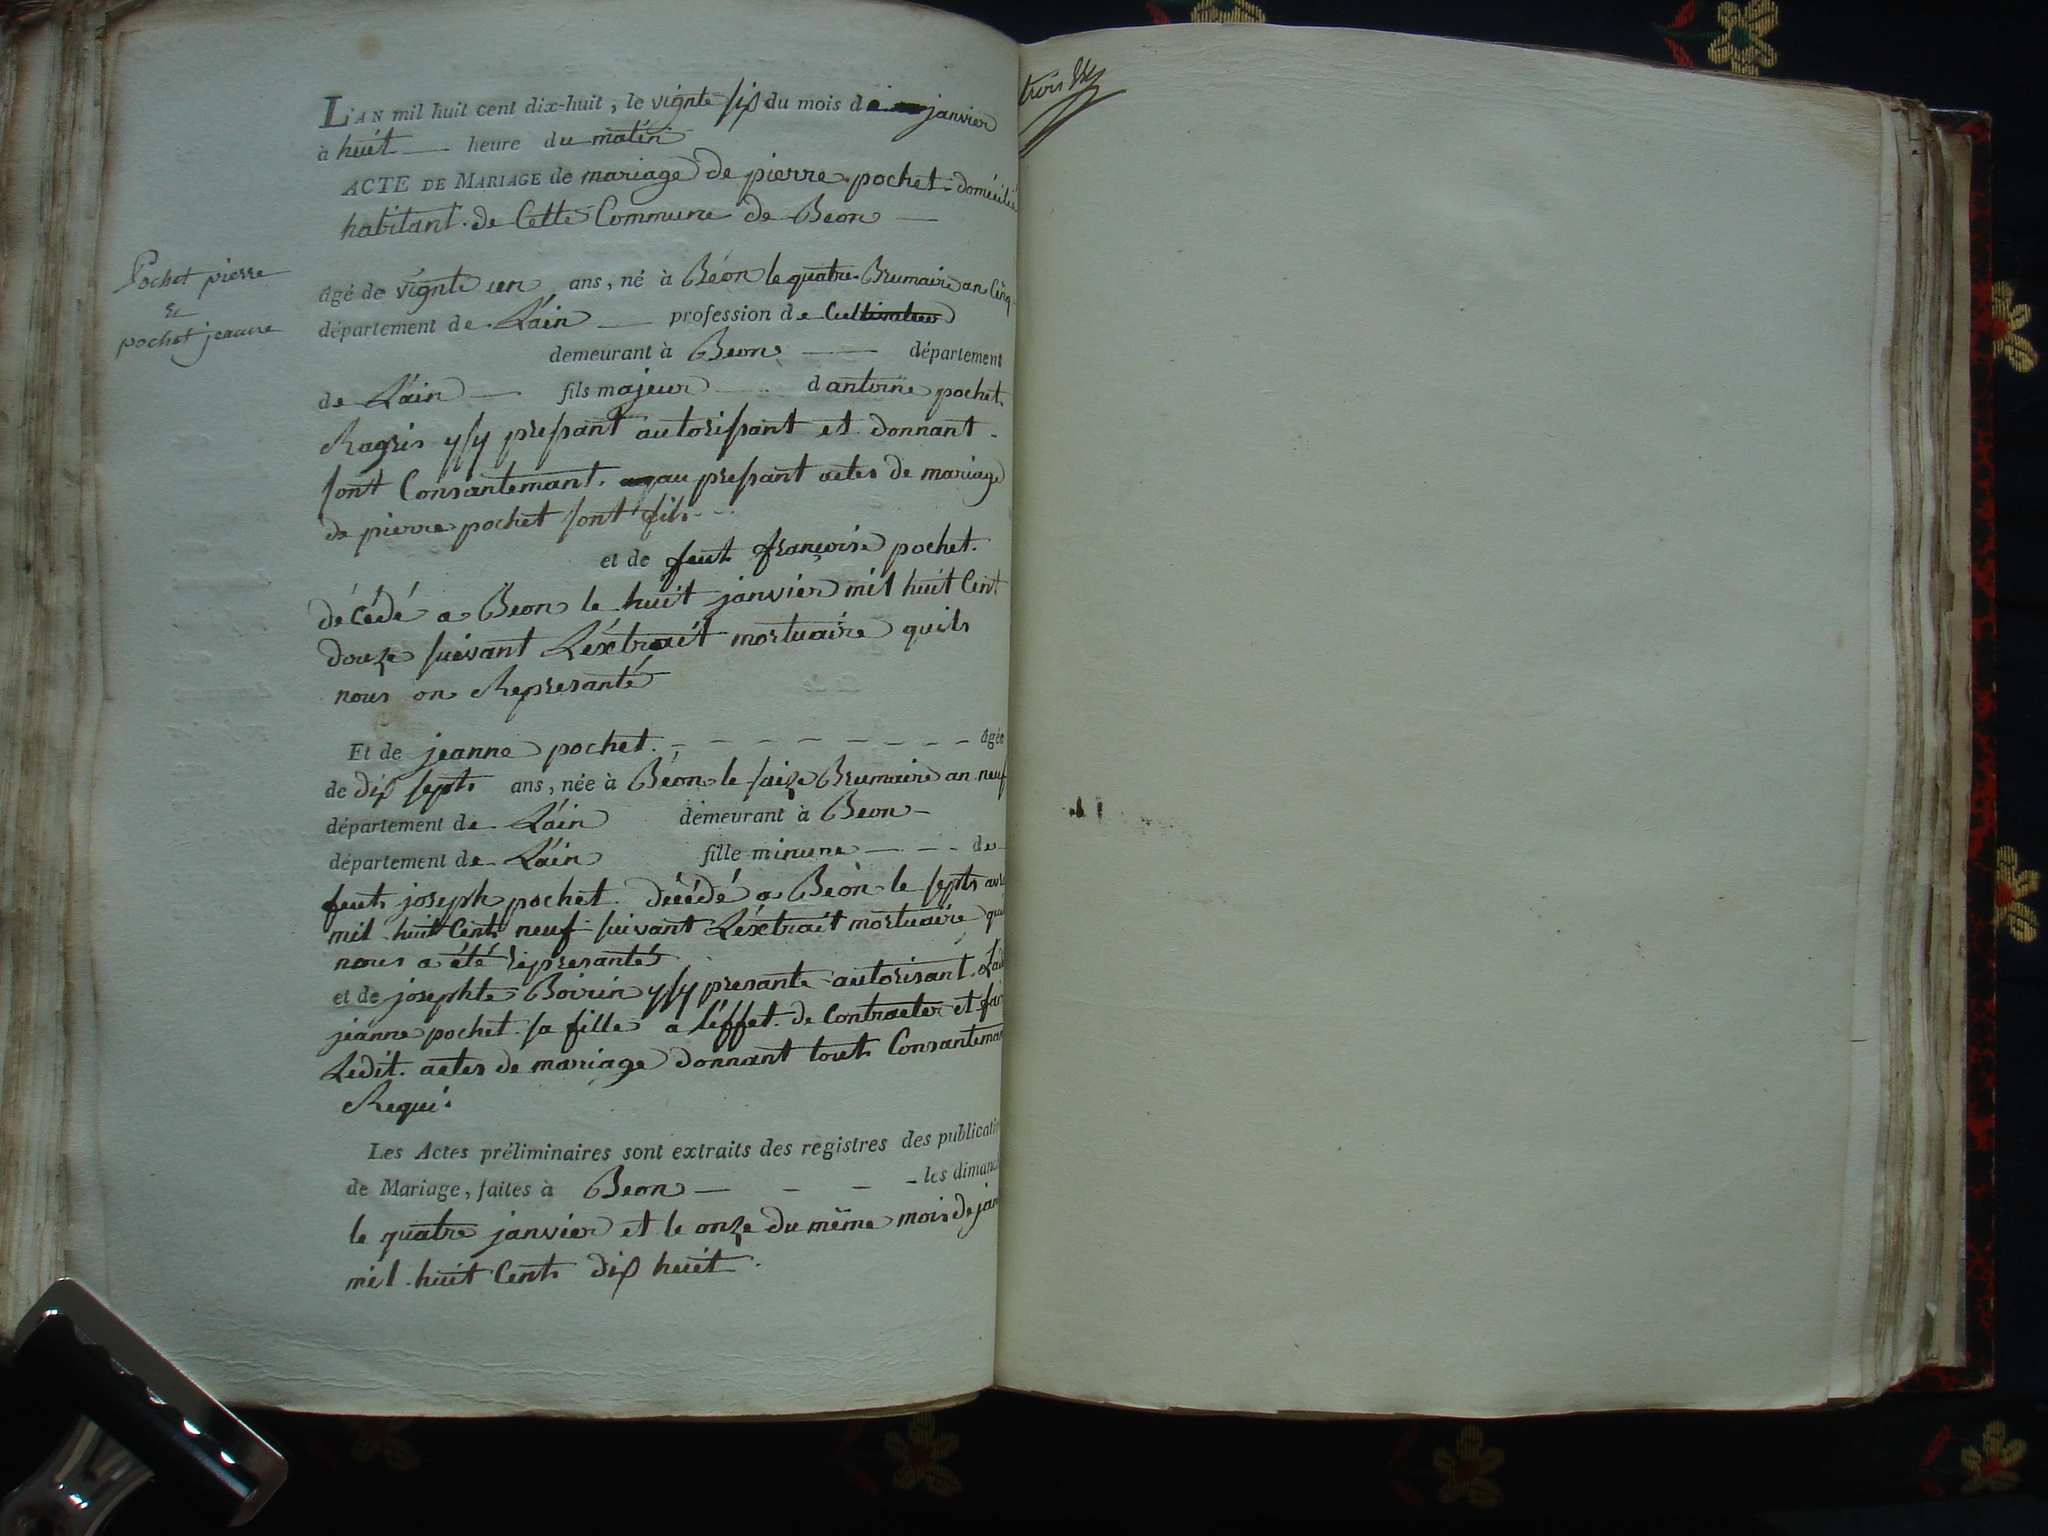 L'AN mil huit cent dix-huit, le vignte six du mois de janvier
à huit heure du matin
ACTE DE MARIAGE de mariage de pierre pochet domécilié
habitant de Cette Commune de Beon
Pochet pierre
&
pochet jeanne
âgé de vignte un ans, né à Béon le quatre Brumaire an Cinq
département de Láin profession de Cultivateur
demeurant à Beon département
de Láin fils majeur d antoine pochet
Ragris ysy presant autorisant et donnant
sont Consantemant au presant actes de mariage
de pierre pochet sont fils
et de feut françoise pochet
décédé a Beon le huit janvier mil huit Cent
douze suivant Léxtrait mortuaire quils
nous on Representé
Et de jeanne pochet âgée
de dix septs ans, née à Béon le saize Brumaire an neuf
département de Láin demeurant à Beon
département de Láin fille minune de
feut joseph pochet décédé a Beon le septs
mil huit Cent neuf suivant Léxtrait mortuaire
nous a été représantés
et de josephte Boirin ysy presante autorisant
jeanne pochet sa fille a Léffet de Contracter et
Ledit actes de mariage donnant tout Consanteman
Requi
Les Actes préliminaires sont extraits des registres des publication
de Mariage, faites à Beon les dimanch
le quatre janvier et le onze du même mois de jan
mil huit Cent dix huit
trois